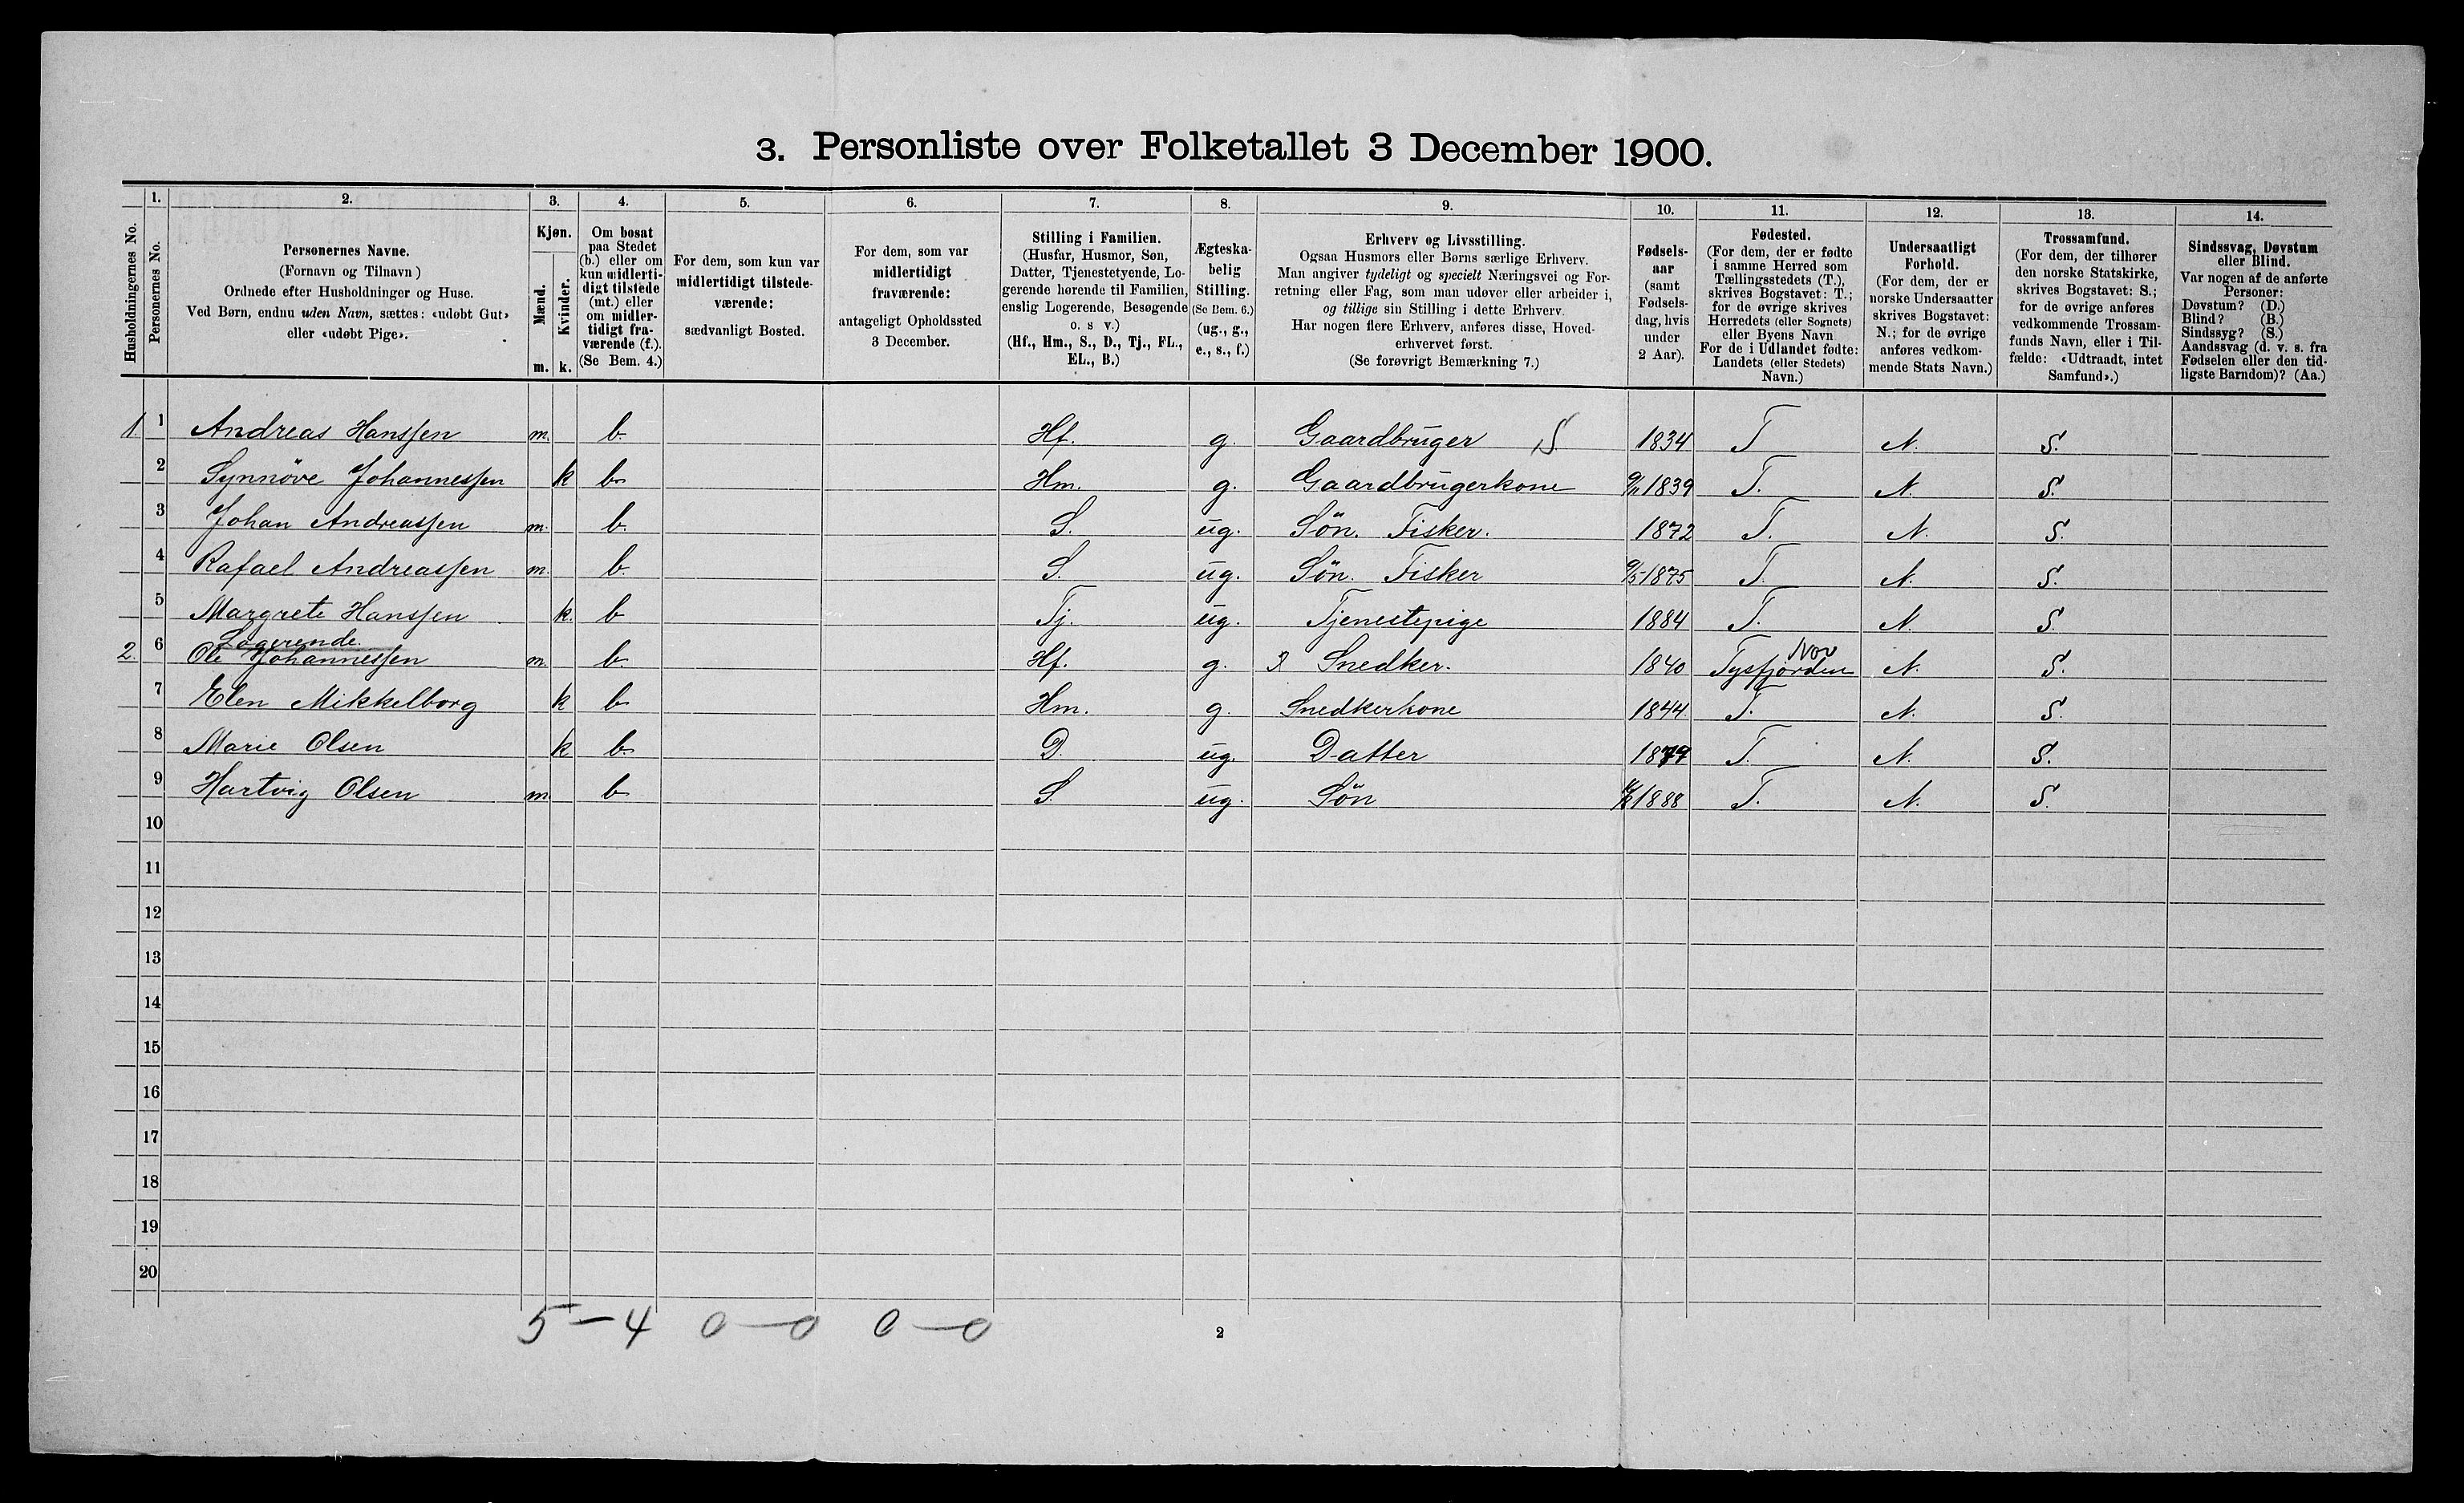 3. Personliste over Folketallet 3 December 1900.
Husholdningernes No.
1. Personernes No.
2. Personernes Navne.
(Fornavn og Tilnavn)
Ordnede efter Husholdninger og Huse.
Ved Børn, endnu uden Navn, sættes: «udøbt Gut»
eller «udøbt Pige».
3. Kjøn.
Mænd. m.
Kvinder. k.
4. Om bosat
paa Stedet
(b.) eller om
kun midlerti-
digt tilstede
(mt.) eller
om midler-
tidigt fra-
værende (f.).
(Se Bem. 4.)
5. For dem, som kun var
midlertidigt tilstede-
værende:
sædvanligt Bosted.
6. For dem, som var
midlertidigt
fraværende:
antageligt Opholdssted
3 December.
7. Stilling i Familien.
(Husfar, Husmor, Søn,
Datter, Tjenestetyende, Lo-
gerende hørende til Familien,
enslig Logerende, Besøgende
o. s v.)
(Hf., Hm., S., D., Tj., FL.,
EL., B.)
8. Ægteska-
belig
Stilling.
(Se Bem. 6.)
(ug., g.,
e., s., f.)
9. Erhverv og Livsstilling.
Ogsaa Husmors eller Børns særlige Erhverv.
Man angiver tydeligt og specielt Næringsvei og For-
retning eller Fag, som man udøver eller arbeider i,
og tillige sin Stilling i dette Erhverv.
Har nogen flere Erhverv, anføres disse, Hoved-
erhvervet først.
(Se forøvrigt Bemærkning 7.)
10. Fødsels-
aar
(samt
Fødsels-
dag, hvis
under
2 Aar).
11. Fødested.
(For dem, der er fødte
i samme Herred som
Tællingsstedets (T.),
skrives Bogstavet: T.;
for de øvrige skrives
Herredets (eller Sognets)
eller Byens Navn
For de i Udlandet fødte:
Landets (eller Stedets)
Navn.)
12. Undersaatligt
Forhold.
(For dem, der er
norske Undersaatter
skrives Bogstavet:
N.; for de øvrige
anføres vedkom-
mende Stats Navn.)
13. Trossamfund.
(For dem, der tilhører
den norske Statskirke,
skrives Bogstavet: S.;
for de øvrige anføres
vedkommende Trossam-
funds Navn, eller i Til-
fælde: «Udtraadt, intet
Samfund».)
14. Sindssvag, Døvstum
eller Blind.
Var nogen af de anførte
Personer:
Døvstum? (D.)
Blind? (B.)
Sindssyg? (S.)
Aandssvag (d. v. s. fra
Fødselen eller den tid-
ligste Barndom)? (Aa.)
1. 1 Andreas Hanssen m. b. Hf. g. Gaardbruger S 1834 T N. S.
2 Synnöve Johannessen k b. Hm. g. Gaardbrugerkone 1839 T. N. S.
3 Johan Andreassen m. b. S. ug. Sön. Fisker. 1872 T. N. S.
4 Rafael Andreassen m. b. S. ug. Sön. Fisker 9/5 1875 T. N. S.
5 Margrete Hanssen k. b Tj. ug. Tjenestepige 1884 T. N. S.
Logerende. Nor
2. 6 Ole Johannessen m. b. Hf. g. Snedker. 1840 Tysfjorden N. S.
7 Elen Mikkelborg k b Hm. g. Snedkerkone 1844. T. N. S.
8 Marie Olsen k b. D. ug. Datter 1879 T. N. S.
9 Hartvig Olsen m b S. ug. Sön 1888 T. N. S.
10
11
12
13
14
15
16
17
18
19
20
5 - 4 0 - 0 0 - 0
2